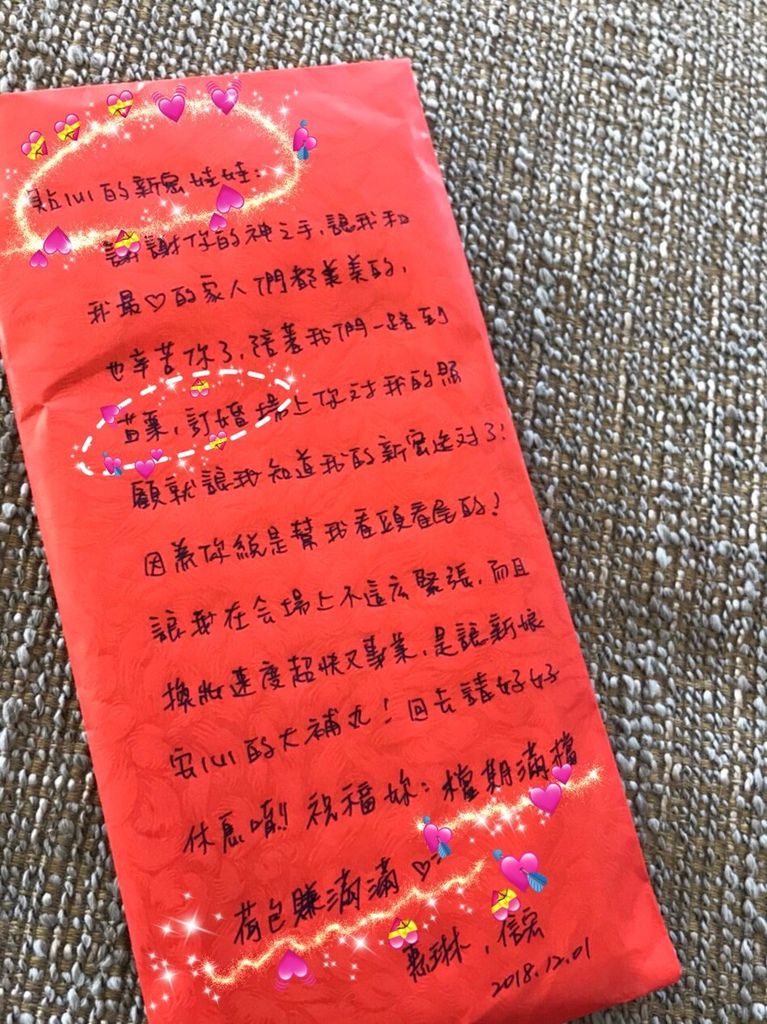 貼心的新祕娃娃：
謝謝你的神之手，讓我和
我最♡的家人們都美美的，
也辛苦你了，陪著我們一路到
苗栗，訂婚場上你对我的照
顧就讓我知道我的新密选对了！
因為你總是幫我看頭看尾的！
讓我在会場上不這広緊張，而且
換妝速度超快又專業，是讓新娘
安心的大補丸！回去請好好
休息喲!! 祝福妳：檔期滿檔
荷包賺滿滿♡
惠琳，信宏
2018.12.01